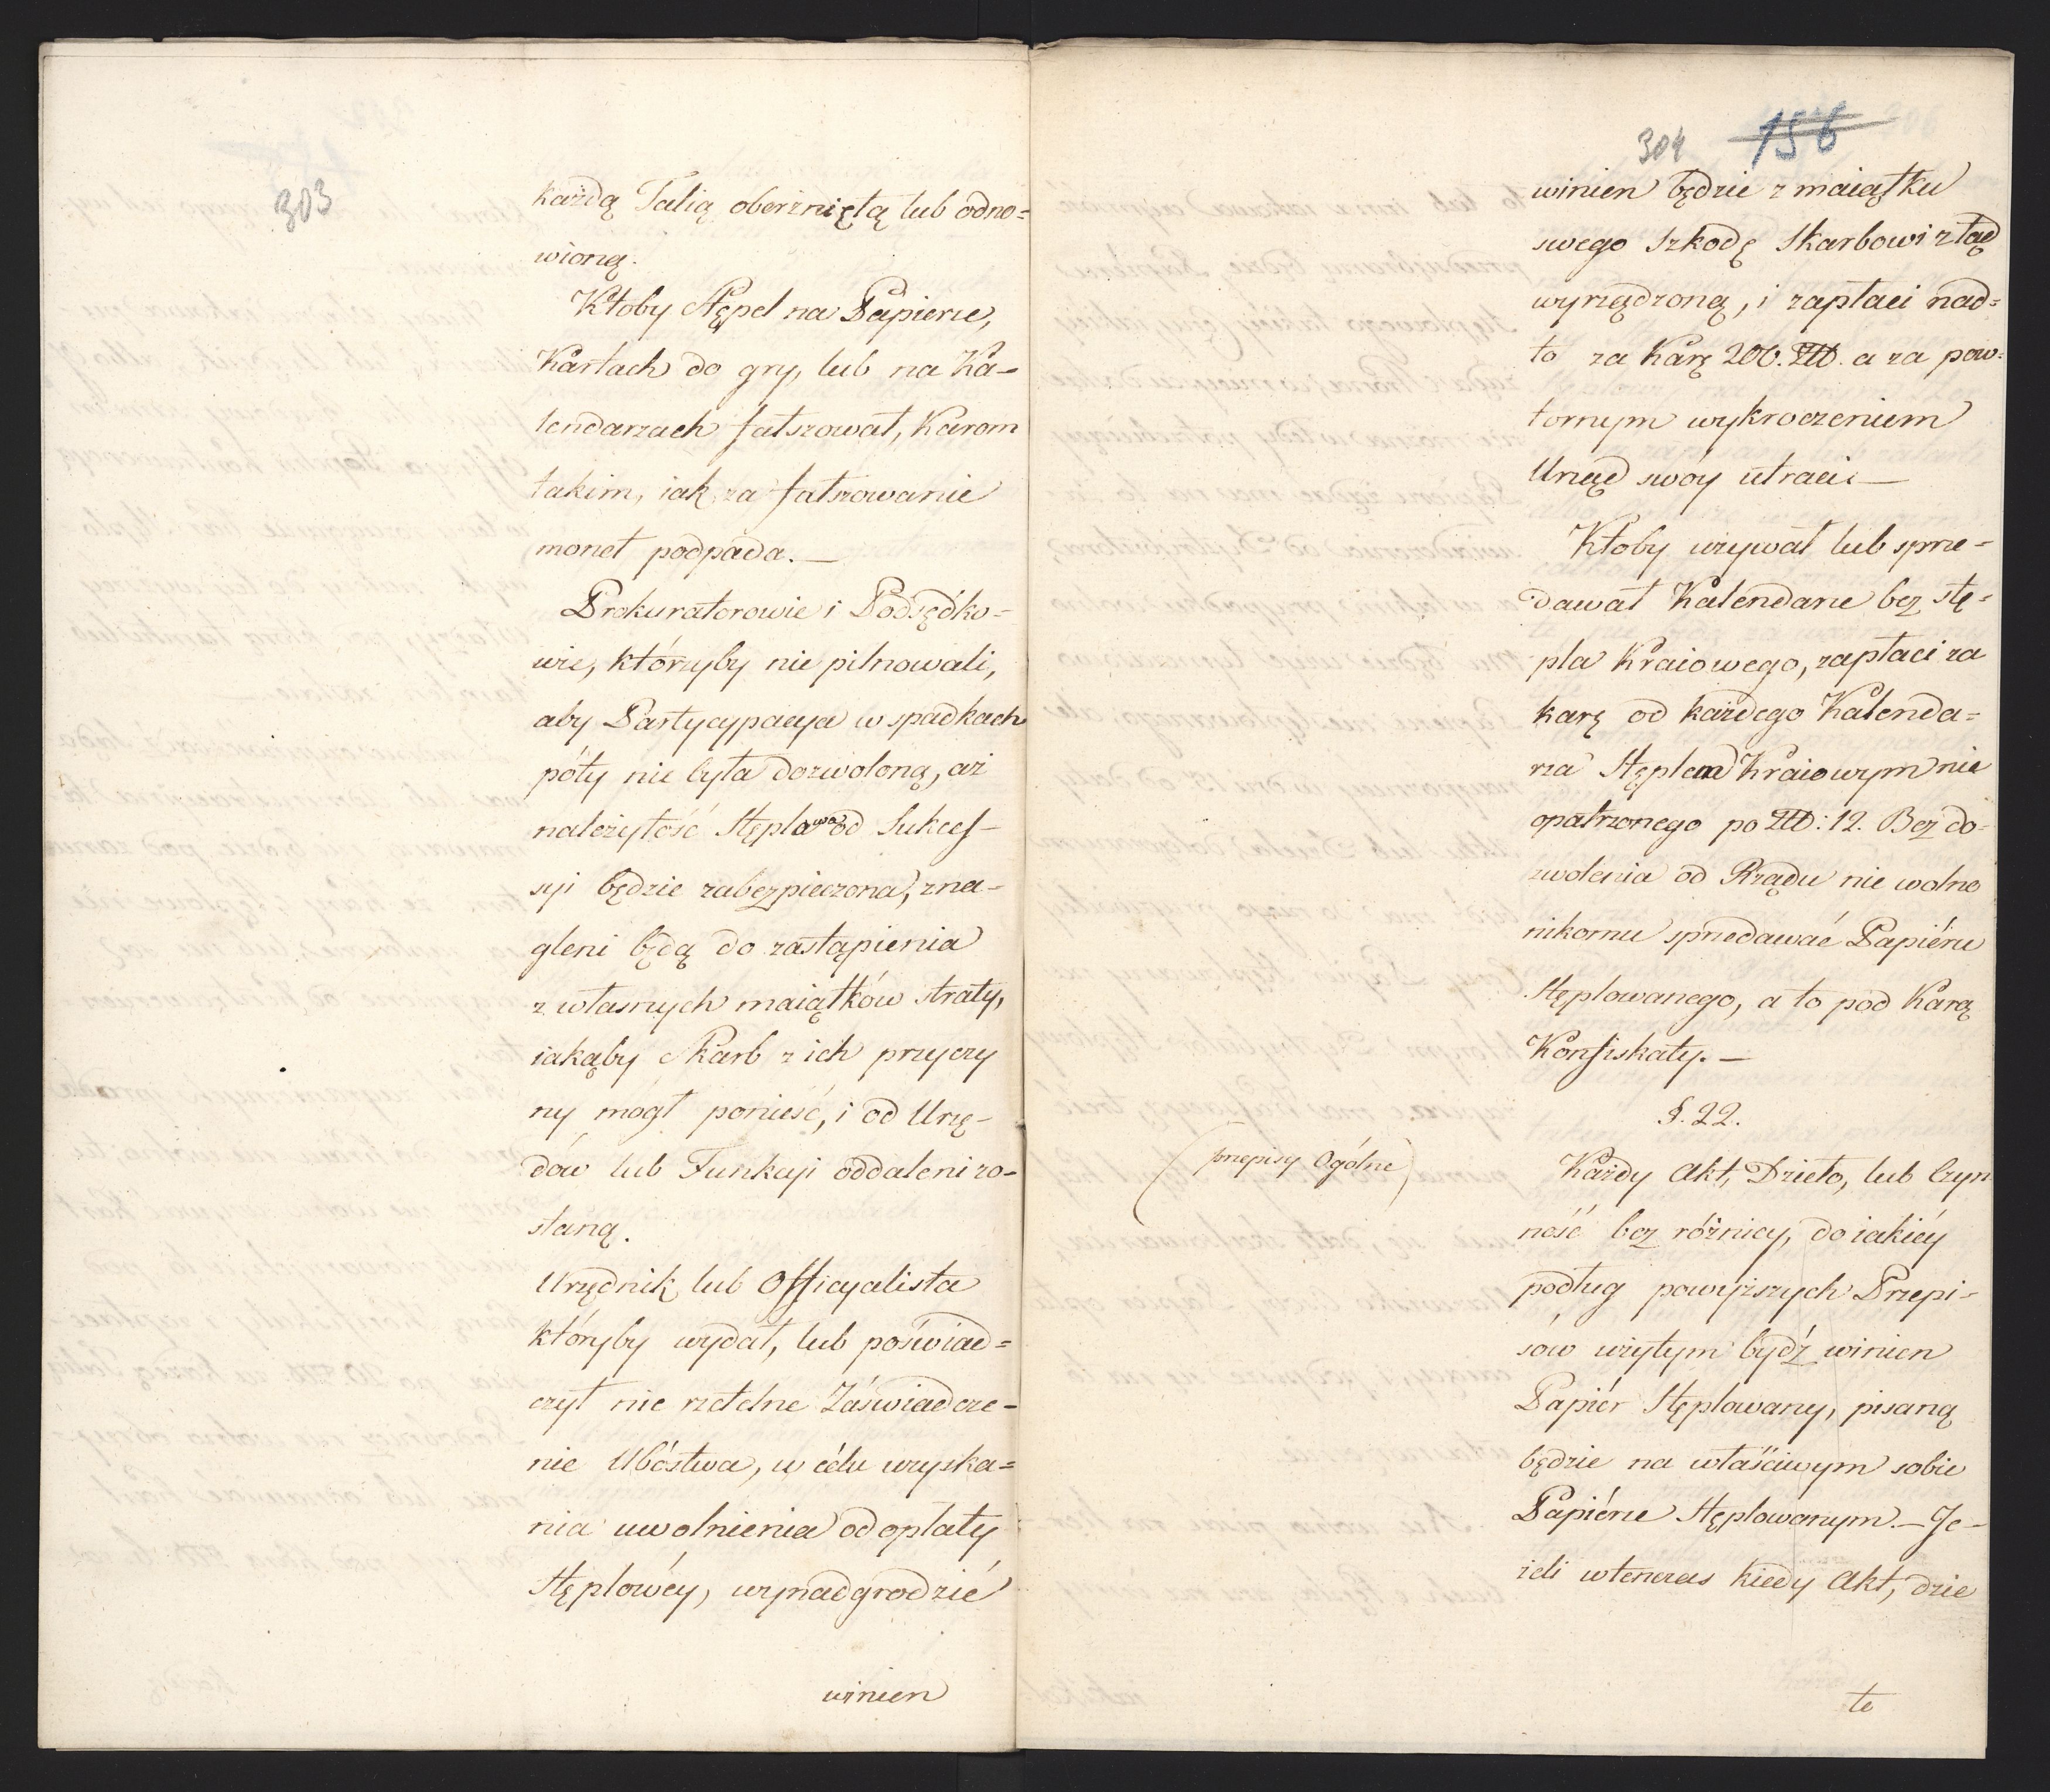 303
każdą Talią oberżniętą lub odno=
wioną.
Ktoby Stępel na Papierze,
Kartach do gry, lub na Ka-
lendarzach fałszował, Karom
takim, iak za fałszowanie
monet podpada.—
Prokuratorowie i Podsędko-
wie, którzyby nie pilnowali,
aby Partycypacya w spadkach
póty nie była dozwoloną, aż
należytość Stęplowa od Sukces-
syi będzie zabezpieczona, zna-
gleni będą do zastąpienia
z własnych maiątków straty,
iakąby Skarb z ich przyczy
ny mógł ponieść, i od Urzę-
dów lub Funkcyi oddaleni zo-
staną.
Urzędnik lub Officyalista
któryby wydał, lub poświad=
czył nie rzetelne Záświadcze-
nie Ubóstwa, w célu uzyska=
nia uwolnienia od opłaty
Stęplowéy, wynadgrodzić
winien
304 156
winien będzie z maiątku
swego Szkodę Skarbowi ztąd
wyrządzoną, i zapłaci nad=
to za Karę 200. Złł. a za pow=
tornym wykroczeniem
Urząd swóy utraci.—
Ktoby używał lub sprze-
dawał Kalendarze bez stę-
pla Kraiowego, zapłaci za
karę od każdego Kalenda=
rza Stęplem Kraiowym nie
opatrzonego po Złł: 12. Bez do-
zwolenia od Rządu nie wolno
nikomu sprzedawać Papiéru
Stęplowanego, a to pod Karą
Konfiskaty.—
§. 22.
(przepisy Ogólne)
Każdy Akt, Dzieło, lub Czyn
ność bez różnicy, do iakiéy
podług powyższych Przepi-
sów użytym bydź winien
Papiér Stęplowany, pisaną
będzie na właściwym sobie
Papiérze Stęplowanym.— Je-
żeli wtenczas kiedy Akt, dzie
te